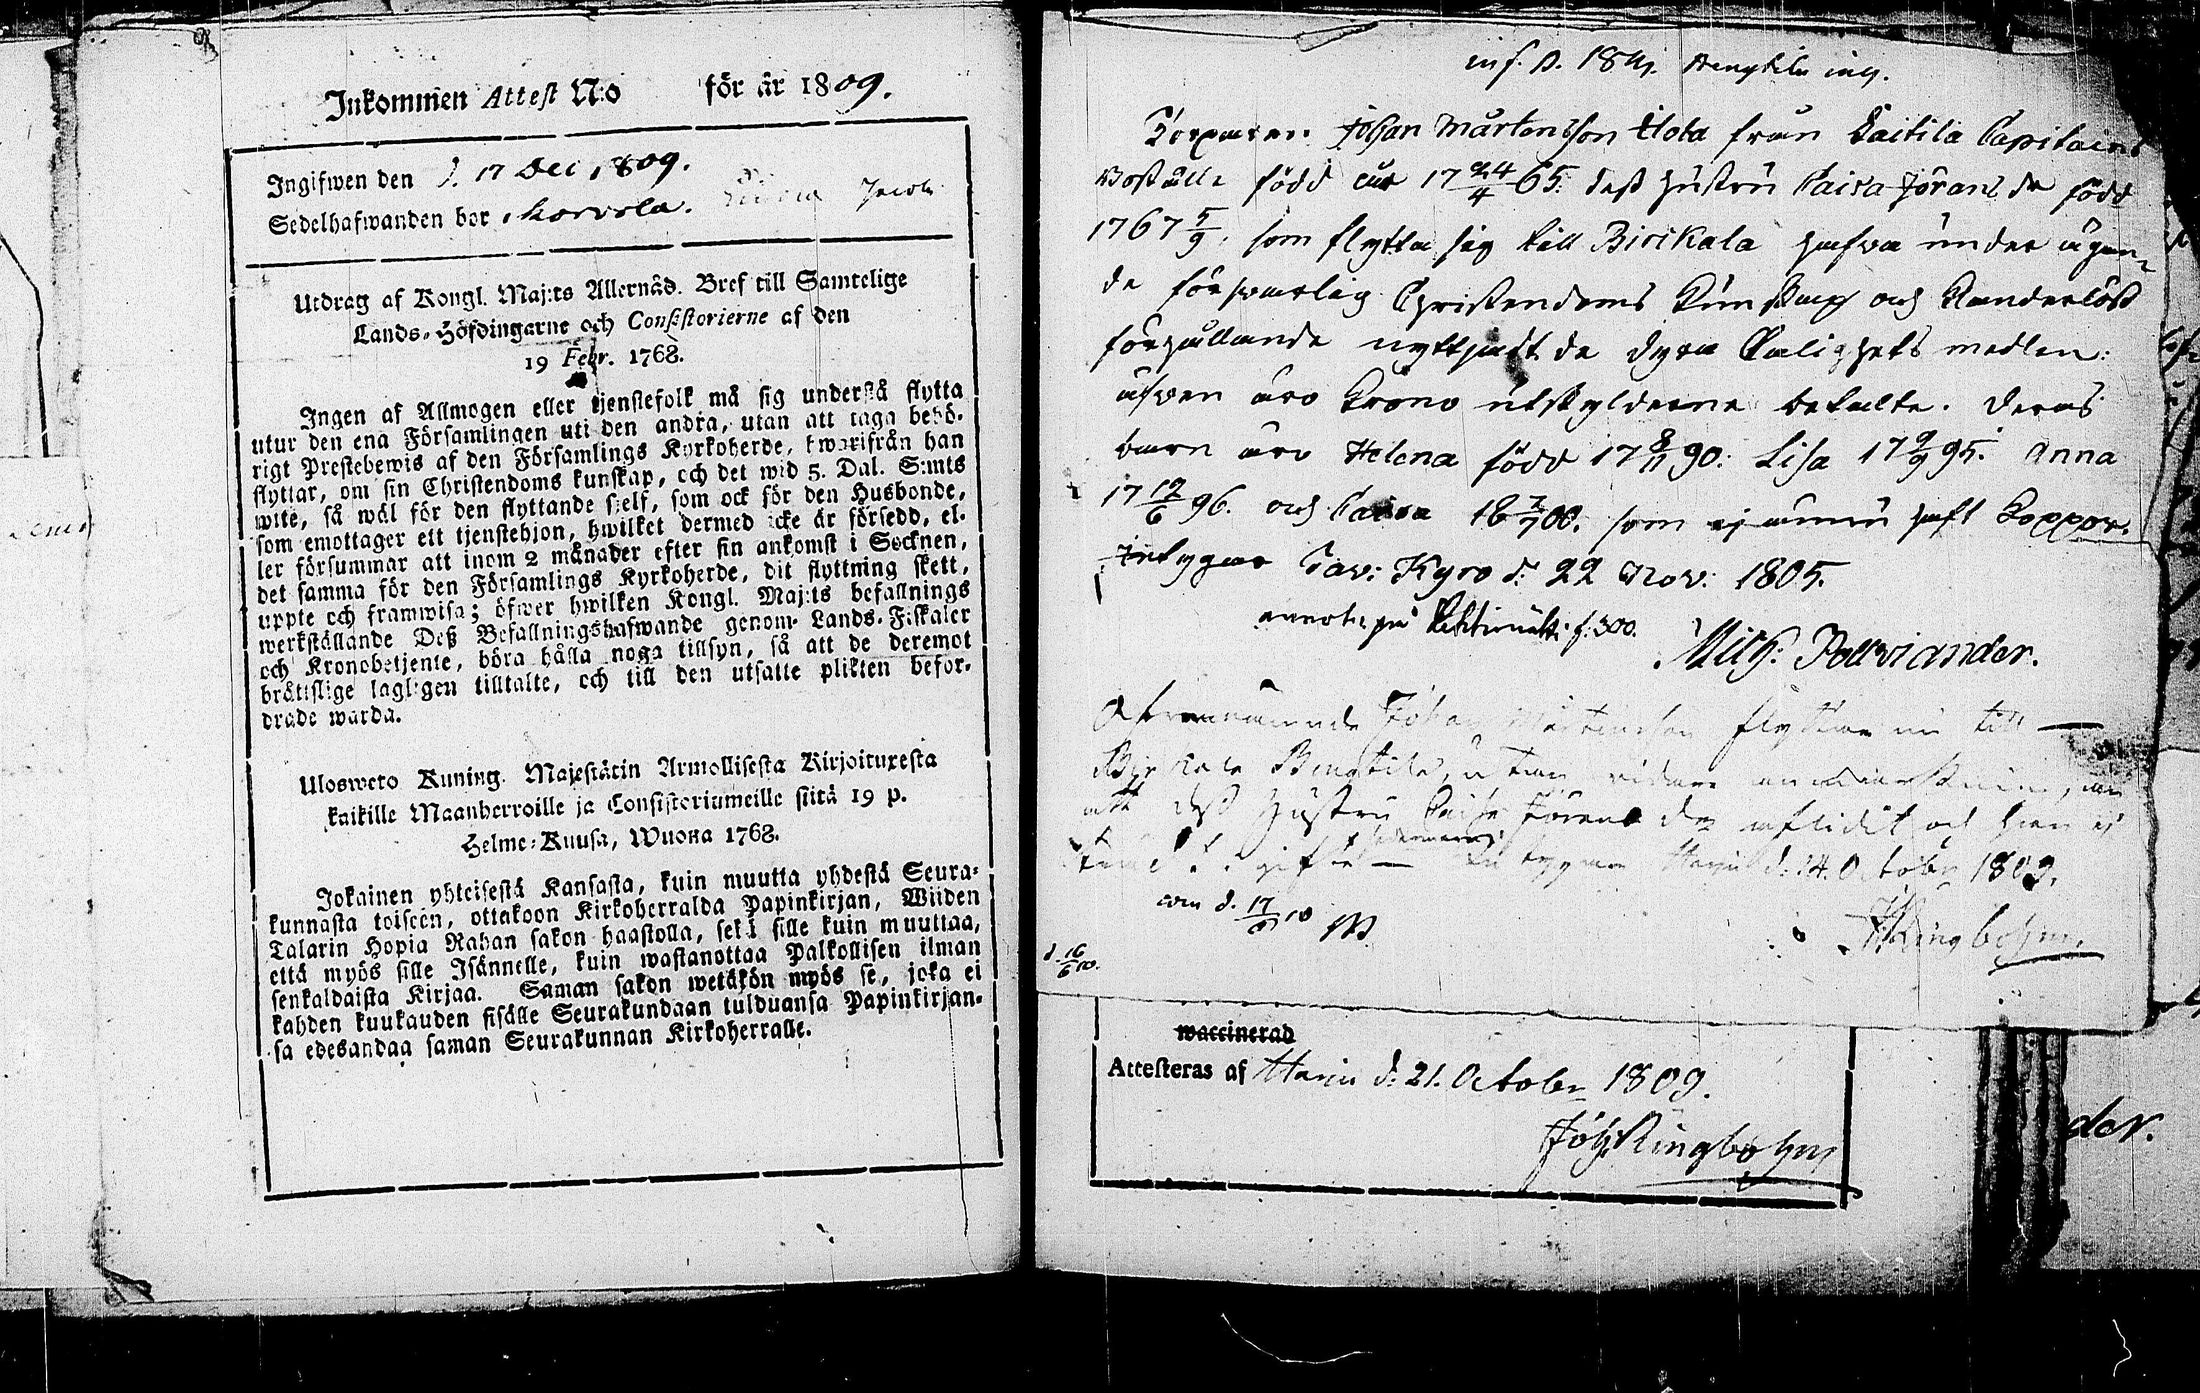 Inkommen Attest N:o för år 1809.
Ingifwen den d. 17 Dec 1809.
Sedelhafwanden bor Korvola. Jacob
Utdrag af Kongl. Maj:ts Allernåd. Bref till Samtelige
Lands-Höfdingarne och Consistorierne af den
19 Febr. 1768.
Ingen af Allmogen eller tjenstefolk må sig understå flytta
utur den ena Församlingen uti den andra, utan att taga behö-
rigt Prestebewis af den Församlings Kyrkoherde, hwarifrån han
flyttar, om sin Christendoms kunskap, och det wid 5. Dal. S:mts
wite, så wäl för den flyttande sjelf, som ock för den Husbonde,
som emottager ett tjenstehjon, hwilket dermed icke är försedd, el-
ler försummar att inom 2 månader efter sin ankomst i Socknen,
det samma för den Församlings Kyrkoherde, dit flyttning skett,
uppte och framwisa; öfwer hwilken Kongl. Maj:ts befallnings
werkställande Deß Befallningshafwande genom Lands-Fiskaler
och Kronobetjente, böra hålla noga tillsyn, så att de deremot
bråttslige lagligen tilltalte, och till den utsatte plikten befor-
drade warda.
Ulosweto Kuning. Majestätin Armollisesta Kirjoituxesta
kaikille Maanherroille ja Consistoriumeille siitä 19 p.
Helme-Kuusa, Wuona 1768.
Jokainen yhteisestä Kansasta, kuin muutta yhdestä Seura-
kunnasta toiseen, ottakoon Kirkoherralda Papinkirjan, Wiiden
Talarin Hopia Rahan sakon haastolla, sekä sille kuin muuttaa,
että myös sille Isännelle, kuin wastanottaa Palkollisen ilman
senkaldaista Kirjaa. Saman sakon wetäkön myös se, joka ei
kahden kuukauden sisälle Seurakundaan tulduansa Papinkirjan-
sa edesandaa saman Seurakunnan Kirkoherralle.
inf. p.
Torparen Johan Mårtensson Uota från Laitila Capitains
Boställe född år 17 24/4 65. deß Hustru Caisa Jörans dr född
1767 5/9, som flytta sig till Birikala hafva under ägan-
de försvarlig Christendoms Kunskap och Klanderlöst
förhållande nyttjadt de dyra Salighets medlen:
äfven äro Krono utskylderna betalte. Deras
barn äro Helena född 17 8/11 90. Lisa 17 9/9 95. Anna
17 12/6 96. och Caisa 18 7/7 00. som ej ännu haft Koppor.
Intygar Tav: Kyro d: 22 Nov: 1805.
f. 300.
Mich: Polviander.
Ofvannämnde Johan Mårtensson flyttar nu till
Birkala Bengtila, utan vidare anmärkning, än
att deß Hustru Caisa Jörans dr aflidit och han ej
gift Intygar d. 14. October 1809.
d. 17/6 10
J. Ringbohm.
d. 16/6 10.
waccinerad
Attesteras af Harju d: 21. October 1809.
Joh: Ringbohm
der.